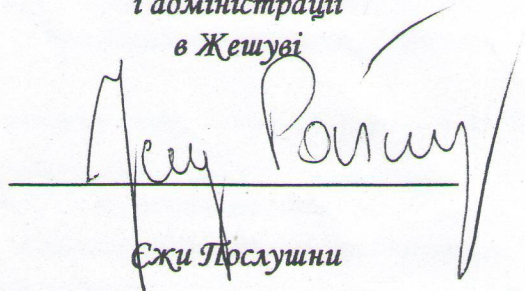 і адміністрації
в Жешуві
Єжи Послушни